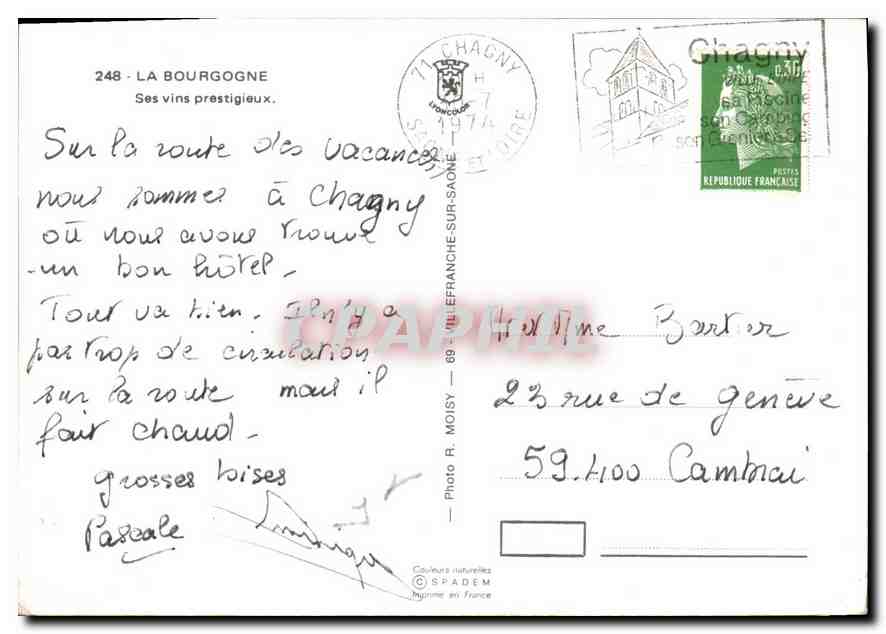 248 - LA BOURGOGNE
Ses vins prestigieux.
Sur la route des vacances,
nous sommes à Chagny
où nous avons trouvé
un bon hôtel.
Tout va bien. Il n'y a
pas trop de circulation
sur la route mais il
fait chaud.
grosses bises
Pascale
71 CHAGNY
1974
SAONE ET LOIRE
LYONCOLOR
Chagny
sa Piscine
son Camping
0.30
POSTES
REPUBLIQUE FRANÇAISE
— Photo R. MOISY — 69 - VILLEFRANCHE-SUR-SAONE —
CPAPHIL
Mme Bartier
23 rue de genève
59.400 Cambrai
Couleurs naturelles
© SPADEM
Imprimé en France